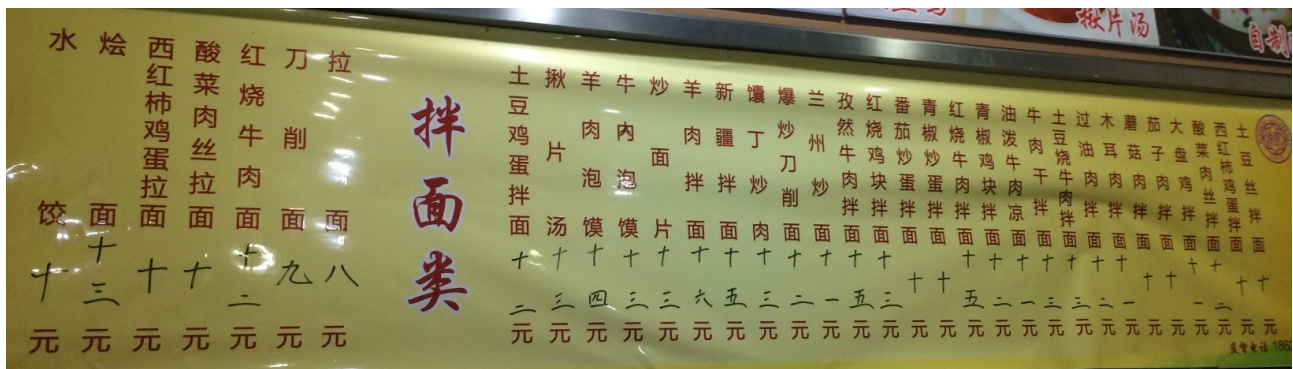 揪片汤
自制
水饺十元
烩面十三元
西红柿鸡蛋拉面十元
酸菜肉丝拉面十元
红烧牛肉面十二元
刀削面九元
拉面八元
拌面类
土豆鸡蛋拌面十二元
揪片汤十三元
羊肉泡馍十四元
牛肉泡馍十三元
炒面片十三元
羊肉拌面十六元
新疆拌面十五元
馕丁炒肉十三元
爆炒刀削面十二元
兰州炒面十一元
孜然牛肉拌面十五元
红烧鸡块拌面十三元
番茄炒蛋拌面十元
青椒炒蛋拌面十元
红烧牛肉拌面十五元
青椒鸡块拌面十二元
油泼牛肉凉面十一元
牛肉干拌面十三元
土豆烧牛肉拌面十三元
过油肉拌面十二元
木耳肉拌面十一元
蘑菇肉拌面十元
茄子肉拌面十元
大盘鸡拌面十一元
酸菜肉丝拌面十二元
西红柿鸡蛋拌面十元
土豆丝拌面十元